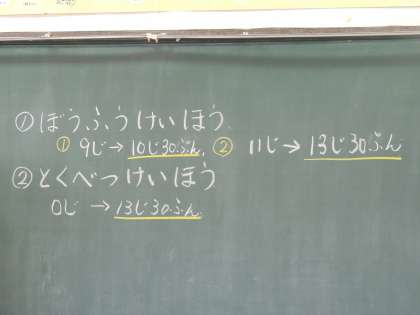 ①ぼうふうけいほう
① 9じ→10じ30ぷん、② 11じ→13じ30ぷん
②とくべつけいほう
0じ →13じ30ぷん